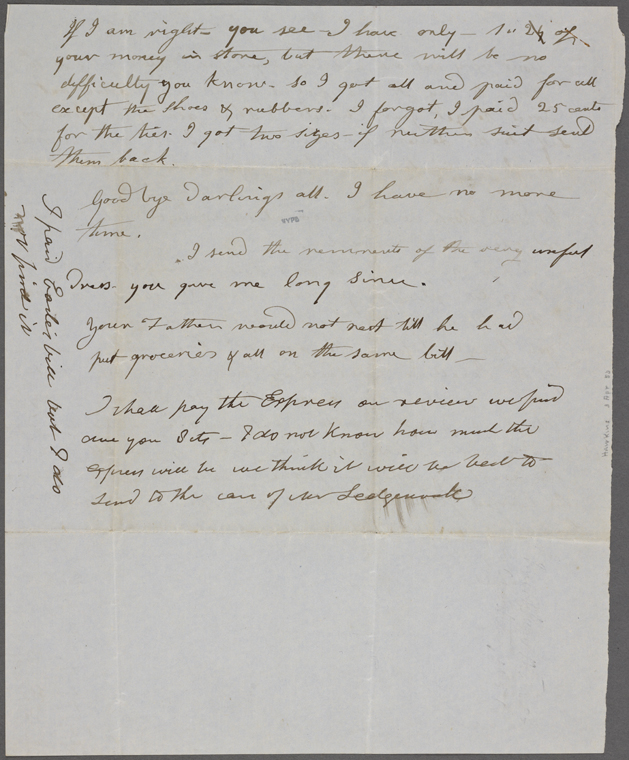 If I am right - you see - I have only - 1.. 24 of
your money in store, but there will be no
difficulty you know. so I got all and paid for all
except the shoes & rubbers. I forgot, I paid 25 cents
for the ties. I got two sizes - if neither suit send
them back.
Good bye Darlings all. I have no more
time.
I send the remnants of the very useful
Dress you gave me long since.
Your Father would not rest till he had
put groceries & all on the same bill -
I shall pay the Express on review we find
owe you 8 cts - I do not know how much the
express will be we think it will be best to
send to the care of Mr Sedgewick
I paid bill but I do
not find it